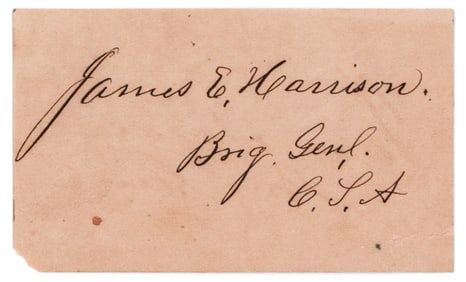 James E. Harrison.
Brig. Genl.
C. S. A